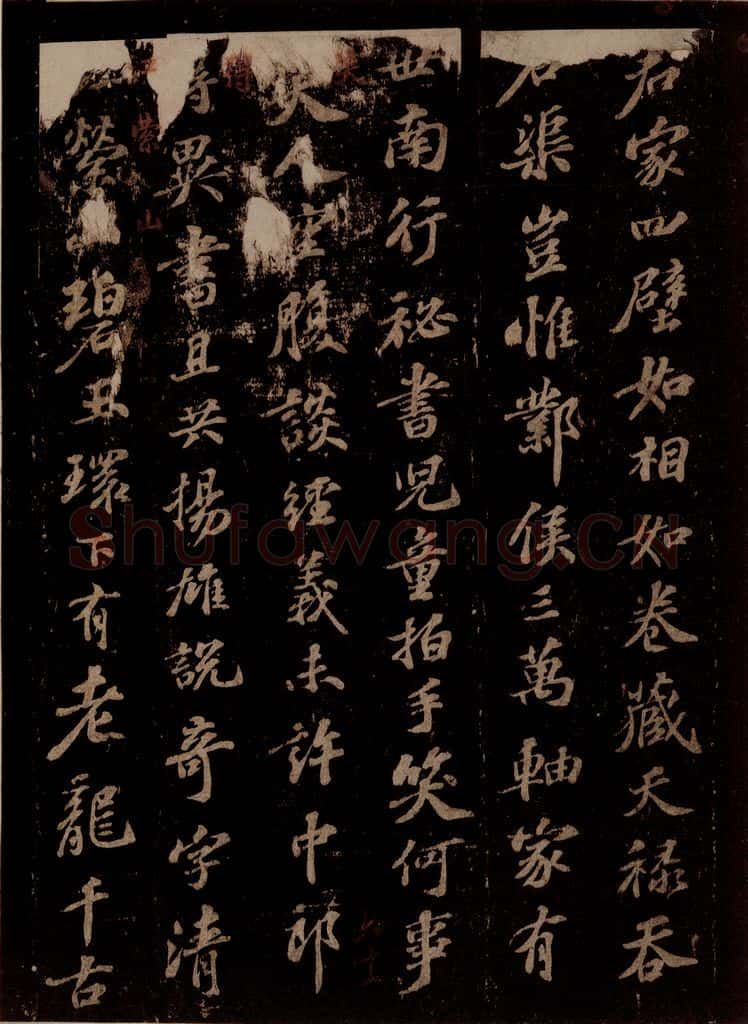 君家四壁如相如卷藏天祿吞
石渠豈惟鄴侯三萬軸家有
世南行祕書兒童拍手笑何事
笑人空腹談經義未許中郎
得異書且共揚雄說奇字清
縈山碧玉環下有老龍千古
Shufawang.CN